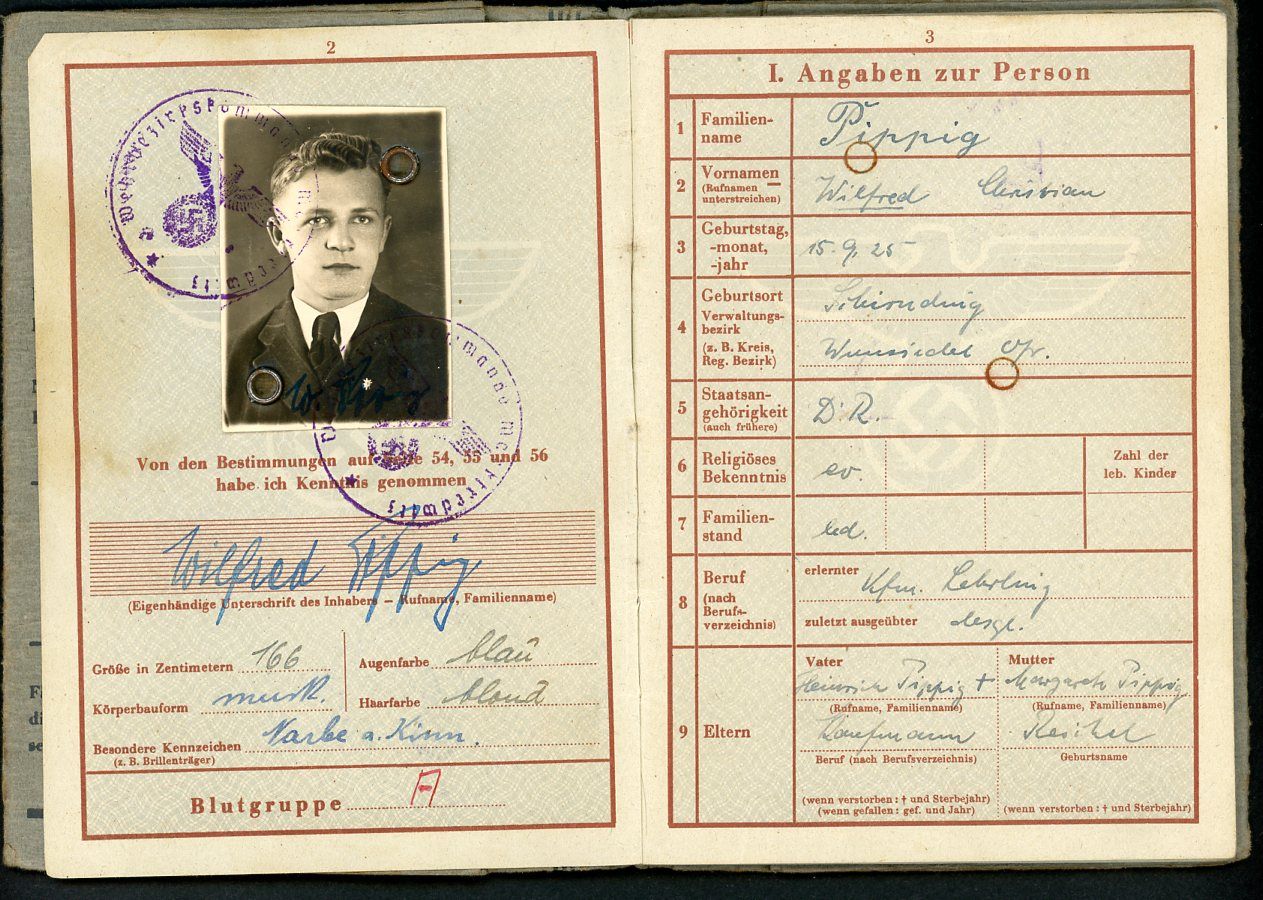 2
Von den Bestimmungen auf Seite 54, 55 und 56
habe ich Kenntnis genommen
Wilfred Pippig
(Eigenhändige Unterschrift des Inhabers – Rufname, Familienname)
Größe in Zentimetern 166 Augenfarbe blau
Körperbauform musk. Haarfarbe blond
Besondere Kennzeichen Narbe a. Kinn.
(z. B. Brillenträger)
Blutgruppe A
3
I. Angaben zur Person
1 Familien-
name
Pippig
2 Vornamen
(Rufnamen
unterstreichen)
Wilfred
3 Geburtstag,
-monat,
-jahr
15. 9. 25
4 Geburtsort
Verwaltungs-
bezirk
(z. B. Kreis,
Reg. Bezirk)
Schirnding
Wunsiedel Ofr.
5 Staatsan-
gehörigkeit
(auch frühere)
D.R.
6 Religiöses
Bekenntnis
ev.
Zahl der
leb. Kinder
7 Familien-
stand
led.
8 Beruf
(nach
Berufs-
verzeichnis)
erlernter Kfm. Lehrling
zuletzt ausgeübter desgl.
9 Eltern
Vater
Heinrich Pippig +
(Rufname, Familienname)
Kaufmann
Beruf (nach Berufsverzeichnis)
(wenn verstorben: † und Sterbejahr)
(wenn gefallen: gef. und Jahr)
Mutter
Margarete Pippig
(Rufname, Familienname)
Reichel
Geburtsname
(wenn verstorben: † und Sterbejahr)